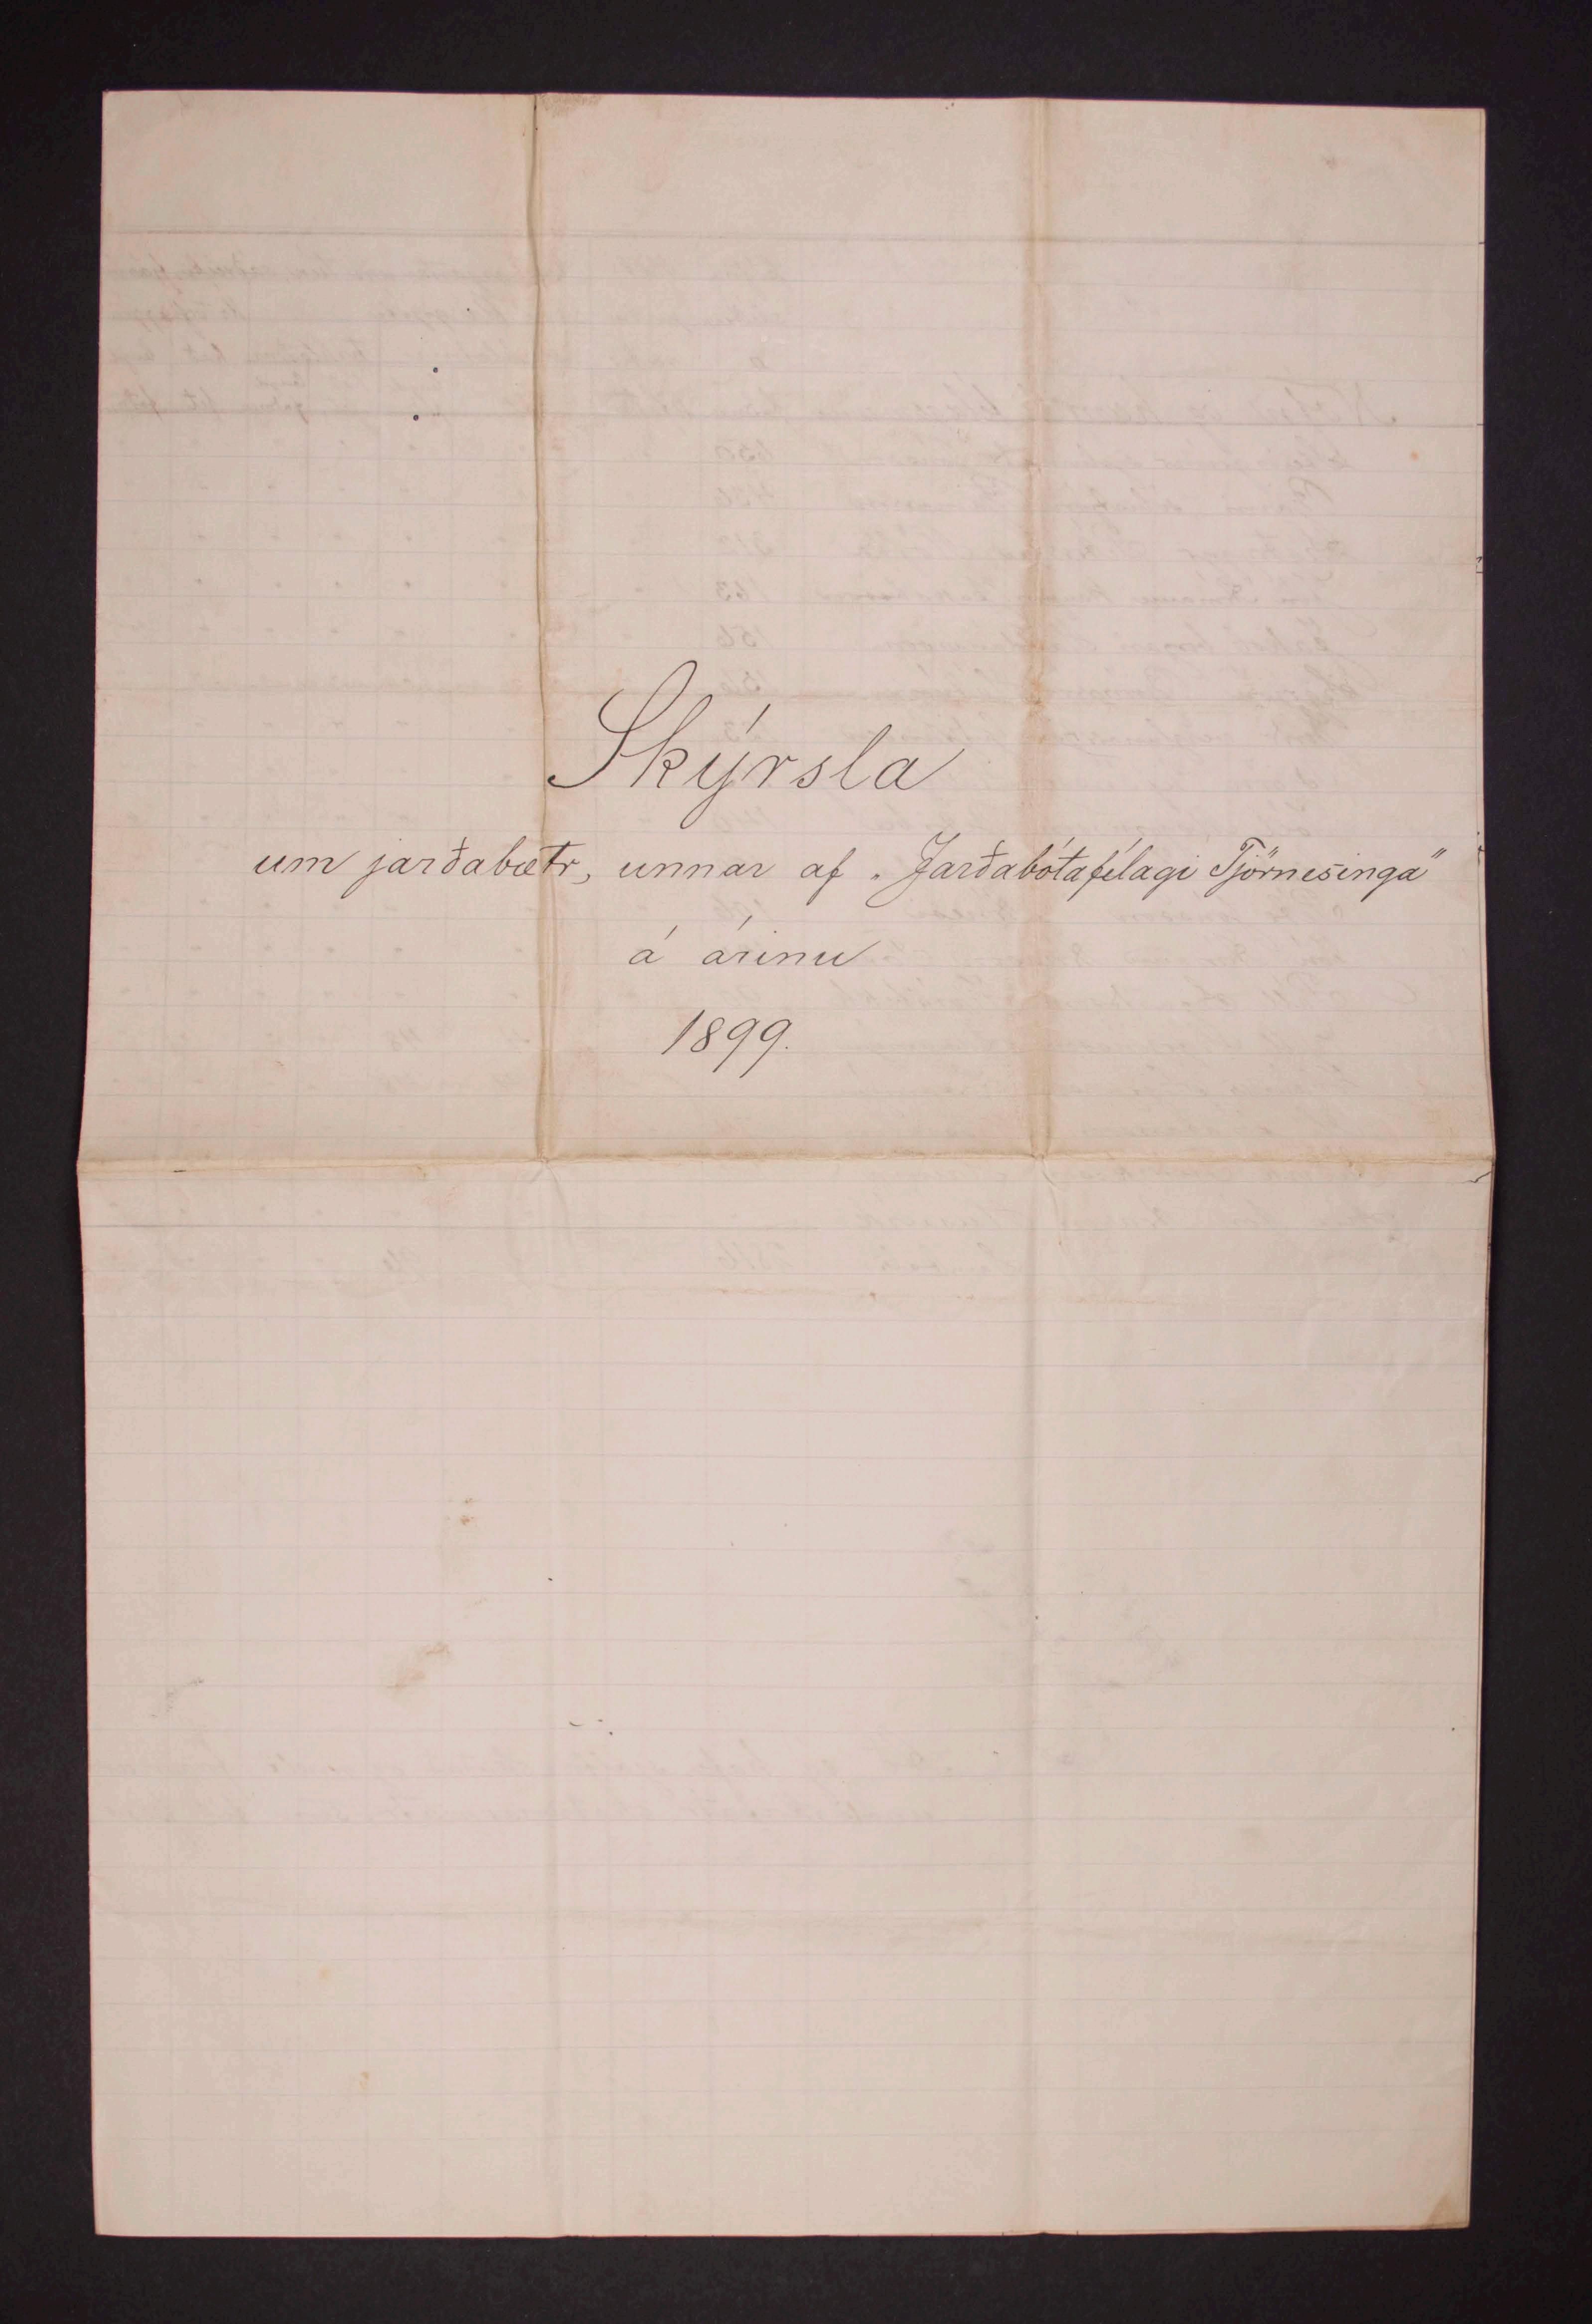 Skýrsla
um jarðabætr, unnar af „Jarðabótafélagi Tjörnesinga"
á árinu
1899.